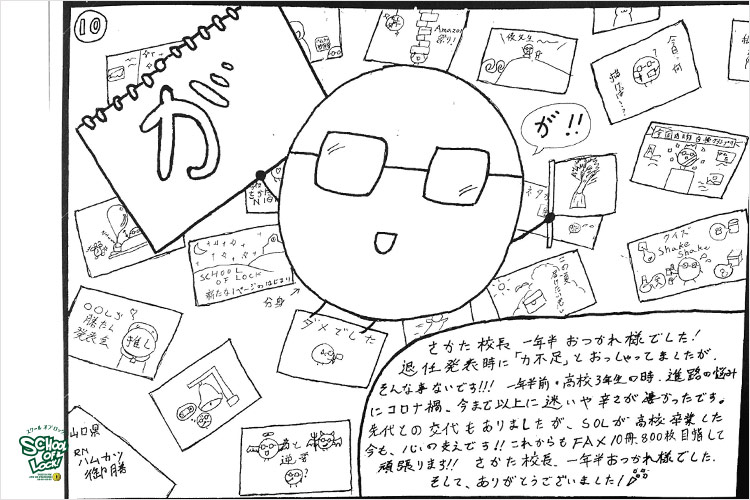 10
が
が!!
Amazon
祭り!
夜天生〜〜
クイズ
Shake
Shake
SCHOOL
OF LOCK
新たな1ページのはじまり
分身
OOLS
勝たん
発表会
推し
ダメでした
山口県
RN
ハムカツ
御膳
スクール オブ ロック!
SCHOOL
OF
LOCK!
さかた校長 一年半 おつかれ様でした!
退任発表時に「力不足」とおっしゃってましたが、
そんな事ないです!!! 一年半前・高校3年生の時、進路の悩み
にコロナ禍、今まで以上に迷いや辛さが凄かったです。
先代との交代もありましたが、SOLが高校卒業した
今も、心の支えです!! これからもFAX10冊、800枚目指して
頑張ります!! さかた校長、一年半おつかれ様でした。
そして、ありがとうございました!